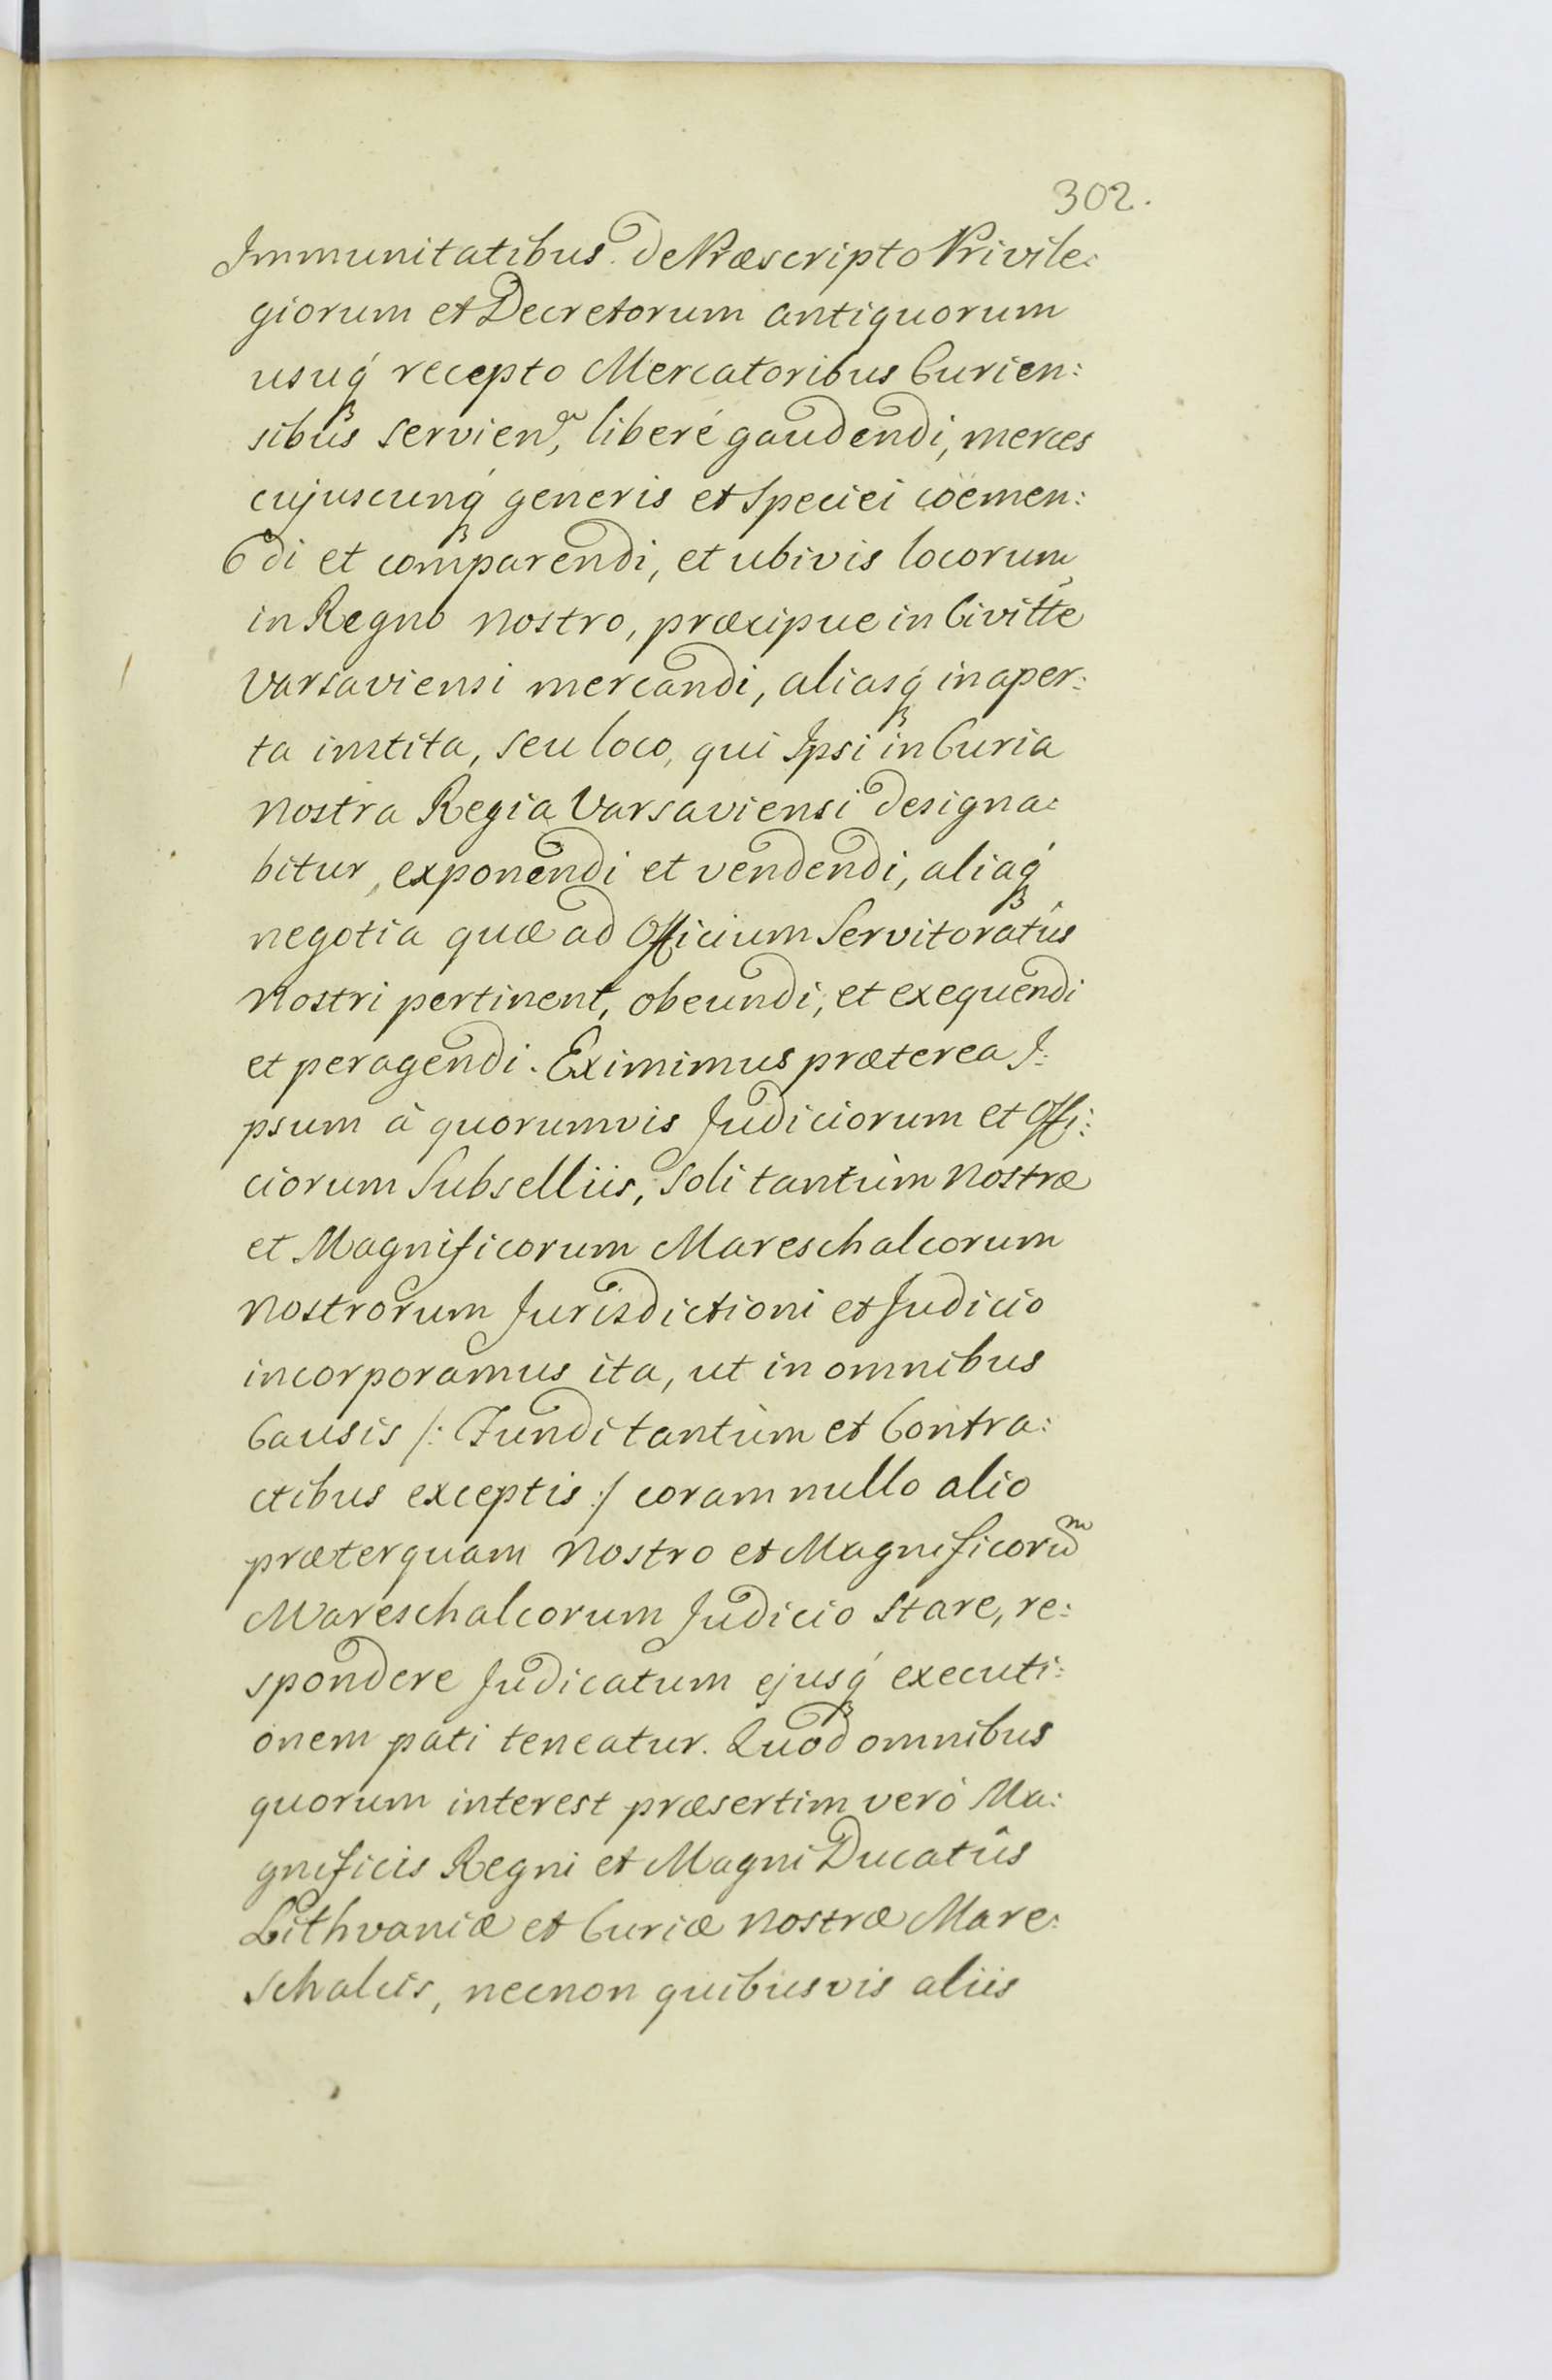 302.
Immunitatibus de Præscripto Privile:
giorum et Decretorum antiquorum
usuq́ recepto Mercatoribus Curien:
sibus servien, liberé gaudendi, merces
cujuscunq́ generis et speciei cöemen:
di et comparendi, et ubivis locorum
in Regno nostro, præcipue in Civitte
Varsaviensi mercandi, aliasq́ in aper:
ta instita, seu loco, qui Ipsi in Curia
nostra Regia Varsaviensi designa:
bitur, exponendi et vendendi, aliaq́
negotia quæ ad Officium Servitoratûs
nostri pertinent, obeundi, et exequendi
et peragendi. Eximimus præterea I:
psum à quorumvis Judiciorum et Offi:
ciorum Subselliis, soli tantùm nostræ
et Magnificorum Mareschalcorum
nostrorum Jurisdictioni et Judicio
incorporamus ita, ut in omnibus
Causis /: Fundi tantùm et Contra:
ctibus exceptis :/ coram nullo alio
præterquam nostro et Magnificorum
Mareschalcorum Judicio stare, re:
spondere Judicatum ejusq́ executi:
onem pati teneatur. Quod omnibus
quorum interest præsertim verò Ma:
gnificis Regni et Magni Ducatûs
Lithvaniæ et Curiæ nostræ Mare:
schalcis, necnon quibusvis aliis